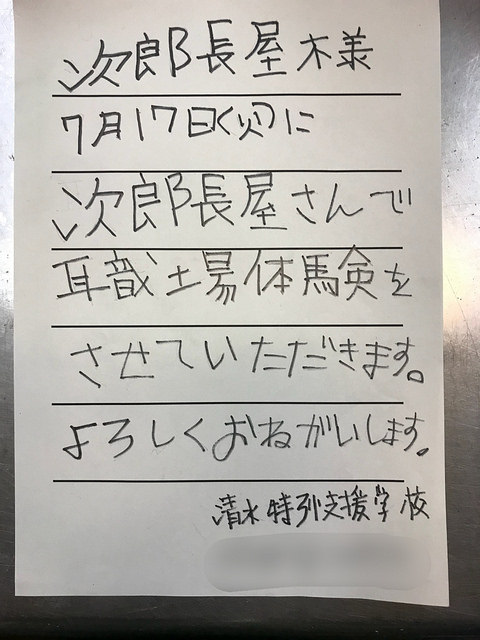 次郎長屋木様
7月17日(火)に
次郎長屋さんで
耳哉土場体馬倹を
させていただきます。
よろしくおねがいします。
清水特別支援学校